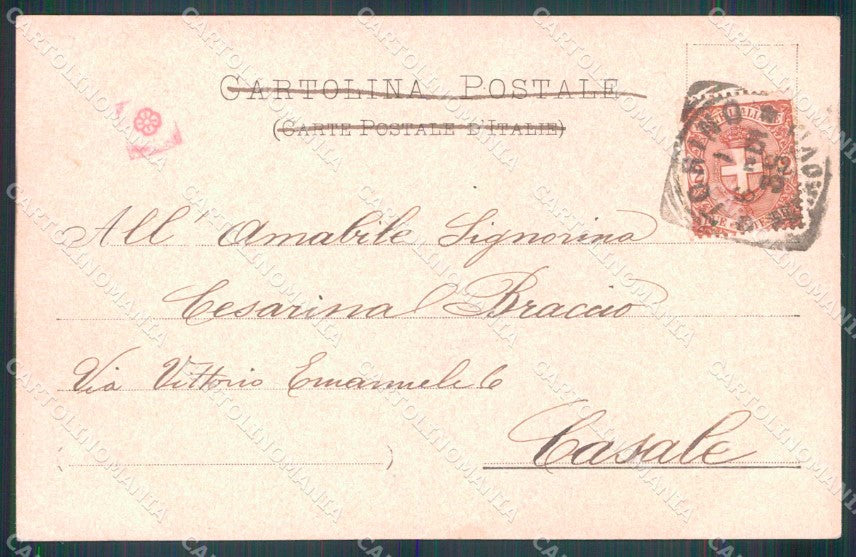 CARTOLINA POSTALE
(CARTE POSTALE D'ITALIE)
TORINO
All' Amabile Signorina
Cesarina Braccio
Via Vittorio Emanuele 6
Casale
CARTOLINOMANIA